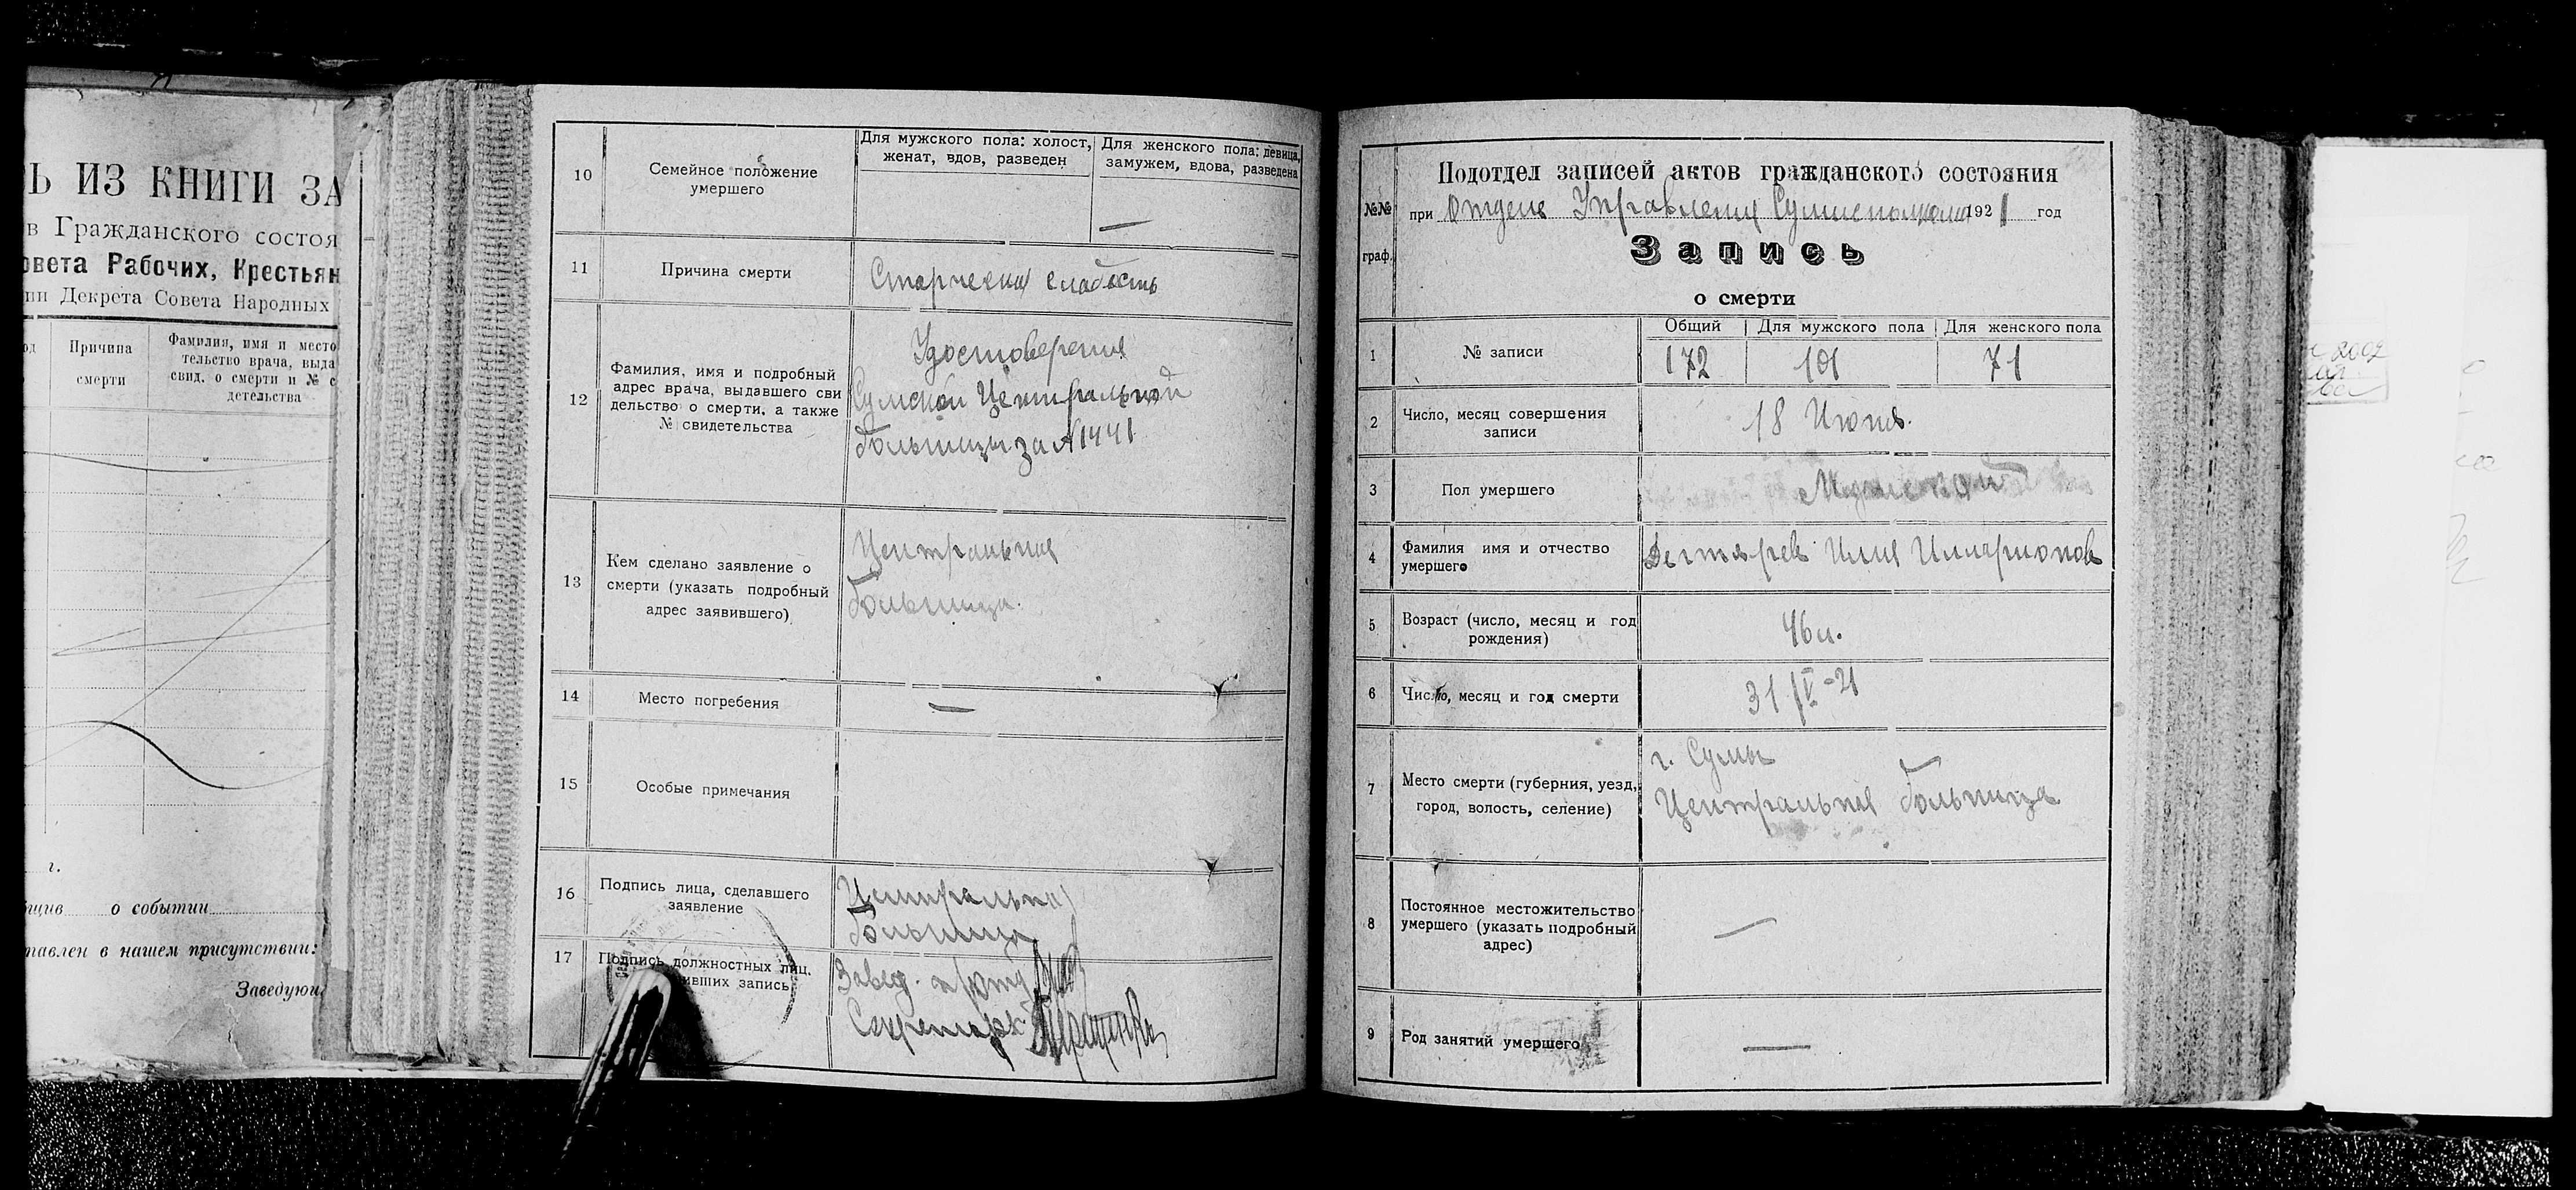 Ь ИЗ КНИГИ ЗА
в Гражданского состоя
овета Рабочих, Крестьян
ии Декрета Совета Народных
Причина
смерти
Фамилия, имя и место
тельство врача, выда
свид. о смерти и № с
детельства
г.
о событии
тавлен в нашем присутствии:
Заведующ
10
Семейное положение
умершего
Для мужского пола: холост,
женат, вдов, разведен
Для женского пола: девица,
замужем, вдова, разведена
—
11
Причина смерти
Старческая слабость
12
Фамилия, имя и подробный
адрес врача, выдавшего сви
дельство о смерти, а также
№ свидетельства
Удостоверения
Сумской Центральной
больницы за № 1441
13
Кем сделано заявление о
смерти (указать подробный
адрес заявившего)
Центральная
больница.
14
Место погребения
—
15
Особые примечания
16
Подпись лица, сделавшего
заявление
Центральная
больница
17
Подпись должностных лиц,
ивших запись
Завед.
Секретарь
№№
граф.
Подотдел записей актов гражданского состояния
при Отделе Управления Сумисполкома 1921 год
Запись
о смерти
1
№ записи
Общий
Для мужского пола
Для женского пола
172
101
71
2
Число, месяц совершения
записи
18 Июня.
3
Пол умершего
Мужской
4
Фамилия имя и отчество
умершего
Дегтярев Илия Иларионов
5
Возраст (число, месяц и год
рождения)
46 л.
6
Число, месяц и год смерти
31/V-21
7
Место смерти (губерния, уезд,
город, волость, селение)
г. Сумы
Центральная больница
8
Постоянное местожительство
умершего (указать подробный
адрес)
—
9
Род занятий умершего
—
2002